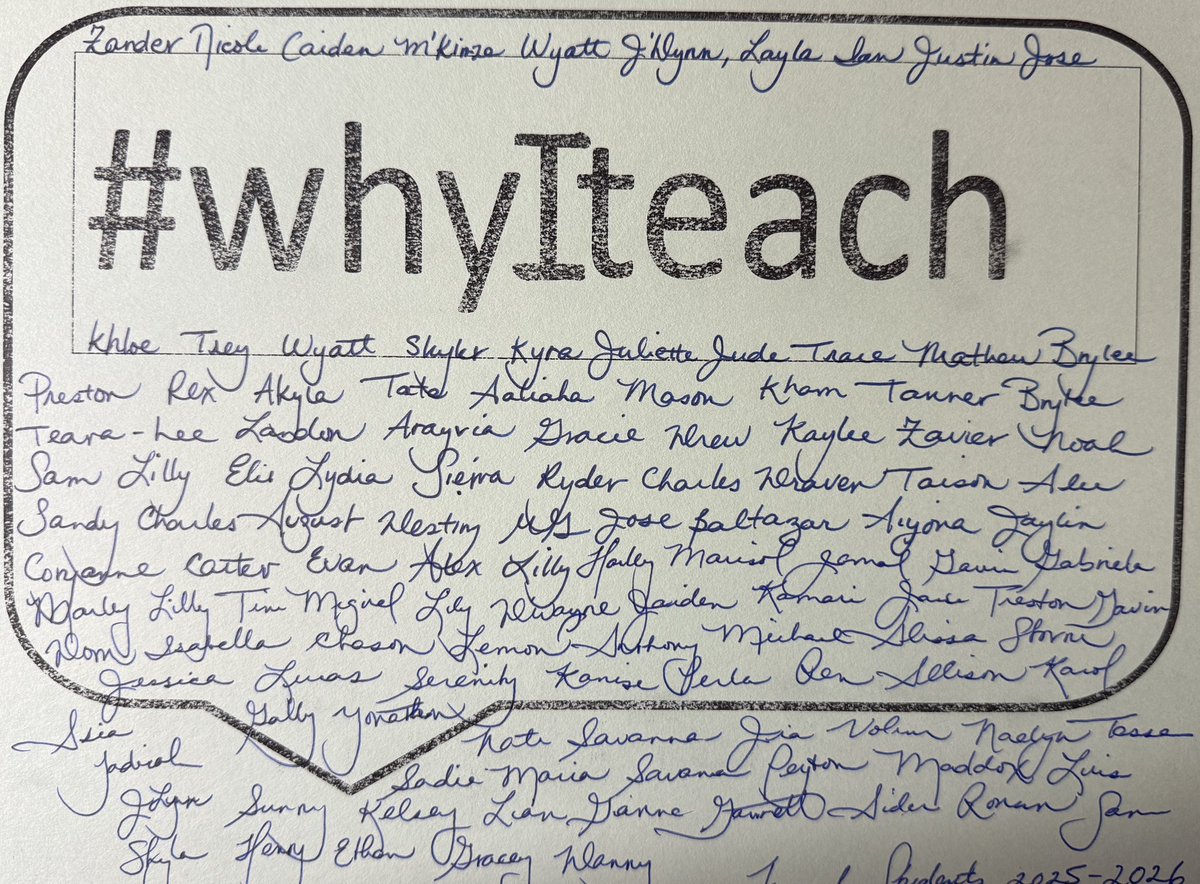 Zander Nicole Caiden M'Kinze Wyatt J'Dlynn, Layla Ian Justin Jose
#whyIteach
Khloe Trey Wyatt Skyler Kyra Juliette Jude Trace Mathew Brylee
Preston Rex Akyla Tate Aaliaha Mason Kham Tanner Brylee
Teara-Lee Landon Arayvia Gracie Drew Kaylee Zavier Noah
Sam Lilly Elis Lydia Sierra Ryder Charles Draven Taison
Sandy Charles August Destiny Jose Baltazar Aiyona Jaylin
Coryanne Carter Evan Alex Lilly Hailey Marisol Jamal Gavin Gabriela
Marley Lilly Tim Miguel Lily Dwayne Jaiden Kamari Treston Gavin
Dom Isabella Chason Lemon Anthony Michael Alissa
Jessica Lucas Serenity Perla Ren Allison Karol
Asia Yonathan
Nate Savanna Naelyn
Sadie Maria Savana Peyton Maddox Luis
J'Lynn Sunny Kelsey Lian Garrett Ronan Sam
Skyla Henry Ethan Gracey Danny
Students 2025-2026